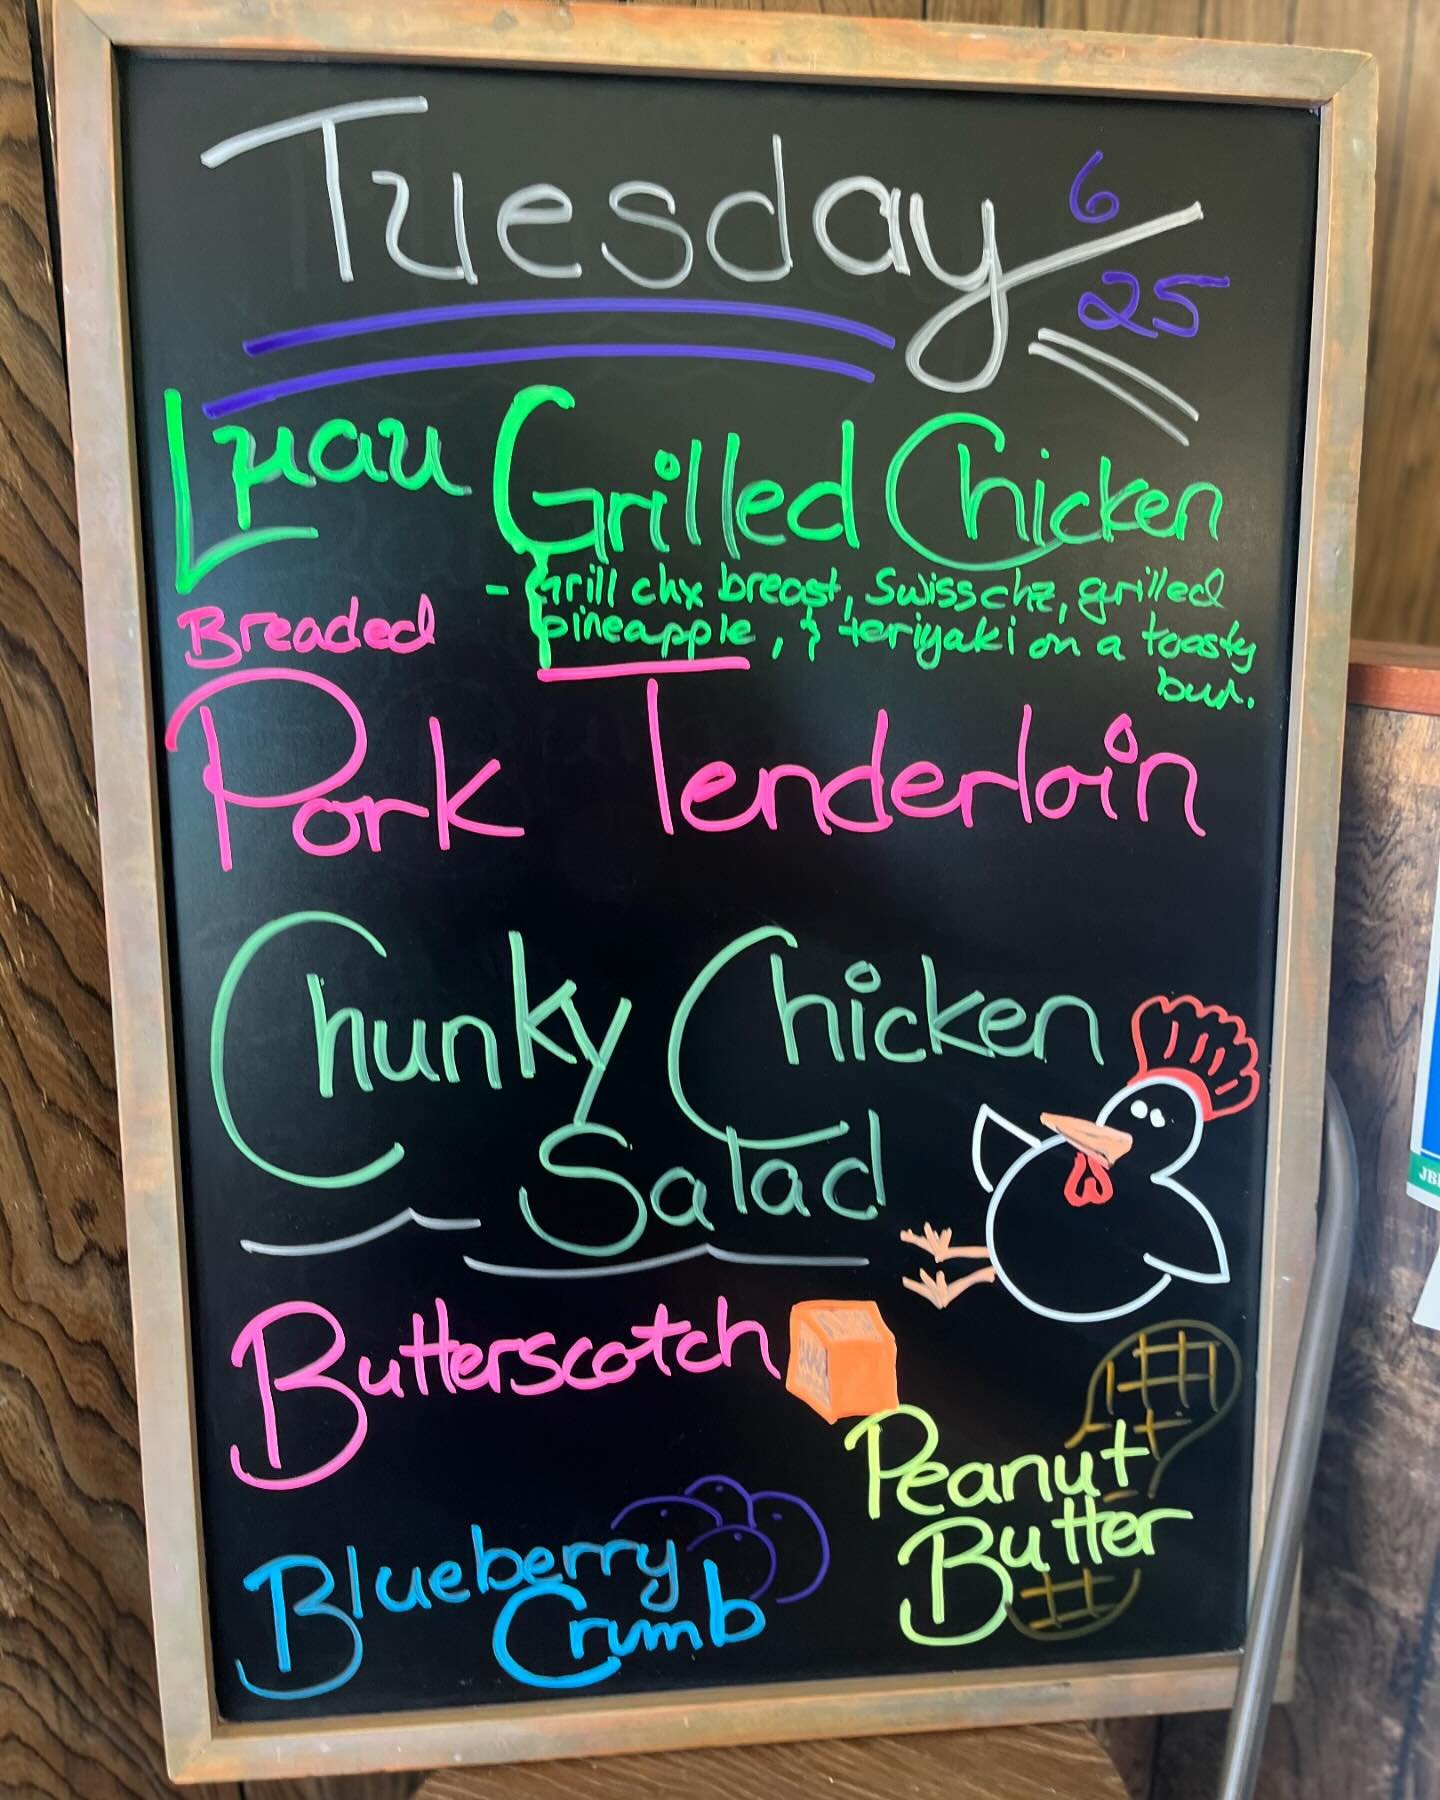 Tuesday 6/25
Luau Grilled Chicken
- Grill chx breast, Swiss chz, grilled
pineapple, & teriyaki on a toasty
bun.
Breaded
Pork Tenderloin
Chunky Chicken
Salad
Butterscotch
Peanut
Butter
Blueberry
Crumb